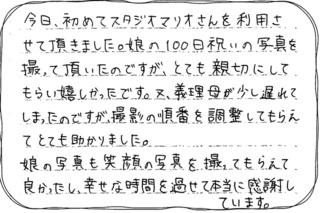 今日、初めてスタジオマリオさんを利用さ
せて頂きました。娘の100日祝いの写真を
撮って頂いたのですが、とても親切にして
もらい嬉しかったです。又、義理母が少し遅れて
しまったのですが、撮影の順番を調整してもらえ
てとても助かりました。
娘の写真も笑顔の写真を撮ってもらえて
良かったし、幸せな時間を過せて本当に感謝し
ています。